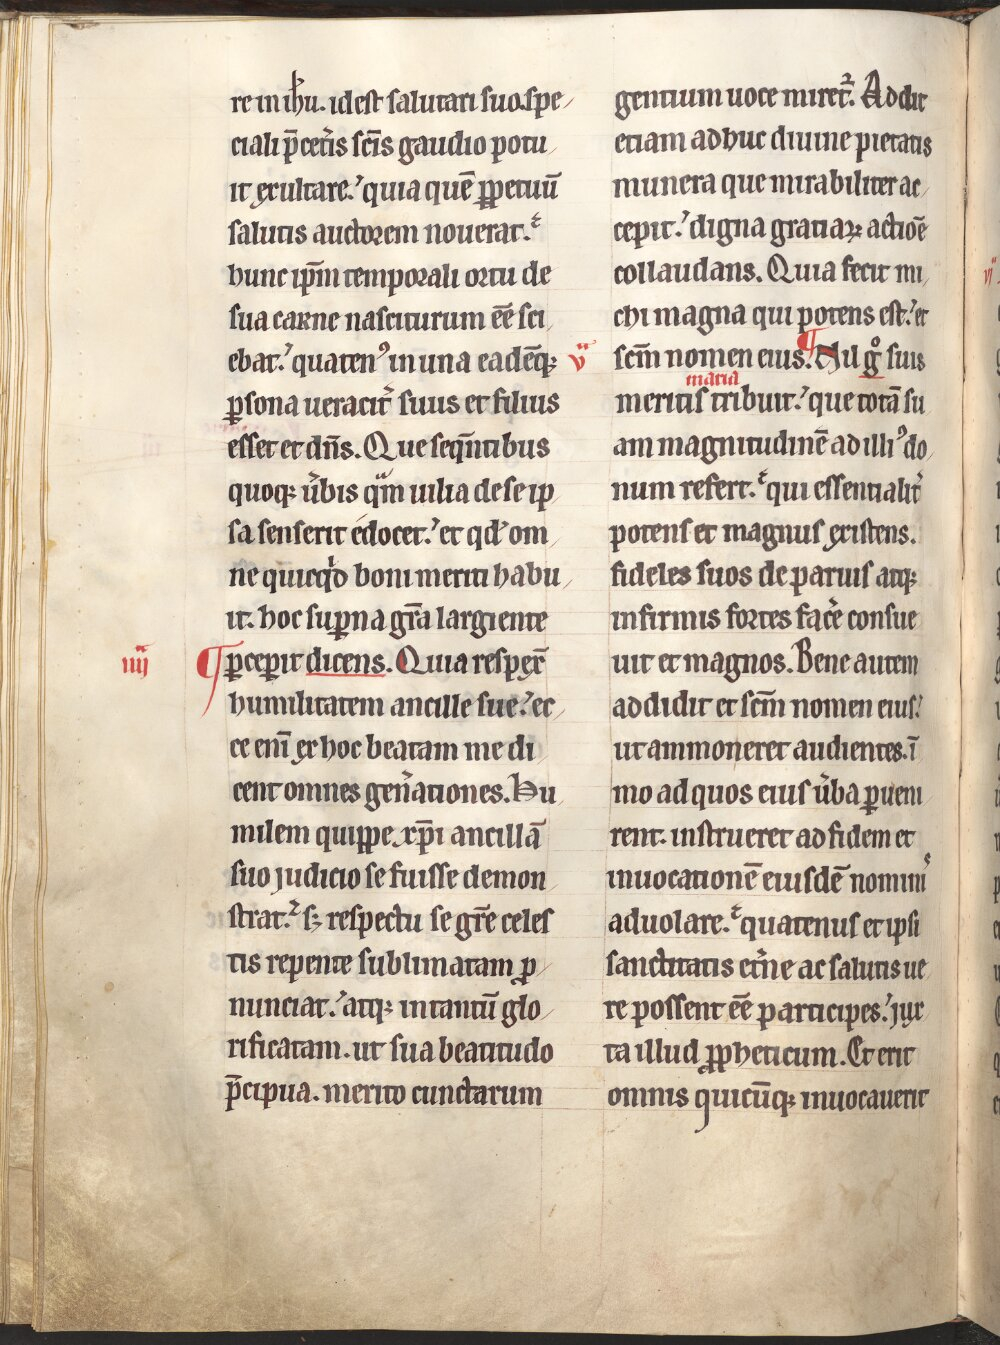 re in ih̅u. id est salutari suo. spe/
ciali p̄ cet̓is sc̄is gaudio potu
it exultare.' quia quē ꝑpetuū
salutis auctorem nouerat.
hunc ip̄m temporali ortu de
sua carne nasciturum ēē sci
ebat.' quatenꝰ in una eadēqꝫ
ꝑsona ueracit̓ suus et filius
esset et dn̄s. Que seqn̄tibus
quoqꝫ u̓bis qm̄ uilia de se ip
sa senserit edocet.' et qd̓ om
ne quicqd̓ boni meriti habu/
it. hoc suꝑna gr̄a largiente
iiij ¶ ꝑcepit dicens. Quia respex̄
humilitatem ancille sue.' ec/
ce eni̅ ex hoc beatam me di
cent omnes gen̓ationes. Hu
milem quippe xp̄i ancillā
suo judicio se fuisse demon
strat. sꝫ respectu se gr̄e celes
tis repente sublimatam ꝓ/
nunciat.' atqꝫ in tantū glo/
rificatam. ut sua beatitudo
p̄cipua. merito cunctarum
gentium uoce miret᷑. Addit
etiam adhuc diuine pietatis
munera que mirabiliter ac/
cepit.' digna gratiaꝝ actiōe
collaudans. Quia fecit mi
chi magna qui potens est.' et
v sc̄m nomen eius. ¶ Nil gͦ suis
maria
meritis tribuit.' que totā su
am magnitudinē ad illiꝰ do/
num refert. qui essentialit̓
potens et magnus existens.
fideles suos de paruis atqꝫ
infirmis fortes fac̓e consue
uit et magnos. Bene autem
addidit et sc̄m nomen eius.'
ut ammoneret audientes. ī
mo ad quos eius u̓ba ꝑueni
rent. instrueret ad fidem et
inuocationē eiusdē nomini
aduolare. quatenus et ipsi
sanctitatis et̓ne ac salutis ue
re possent ēē participes.' jux
ta illud ꝓpheticum. Et erit
omnis quicūqꝫ inuocauerit
vi